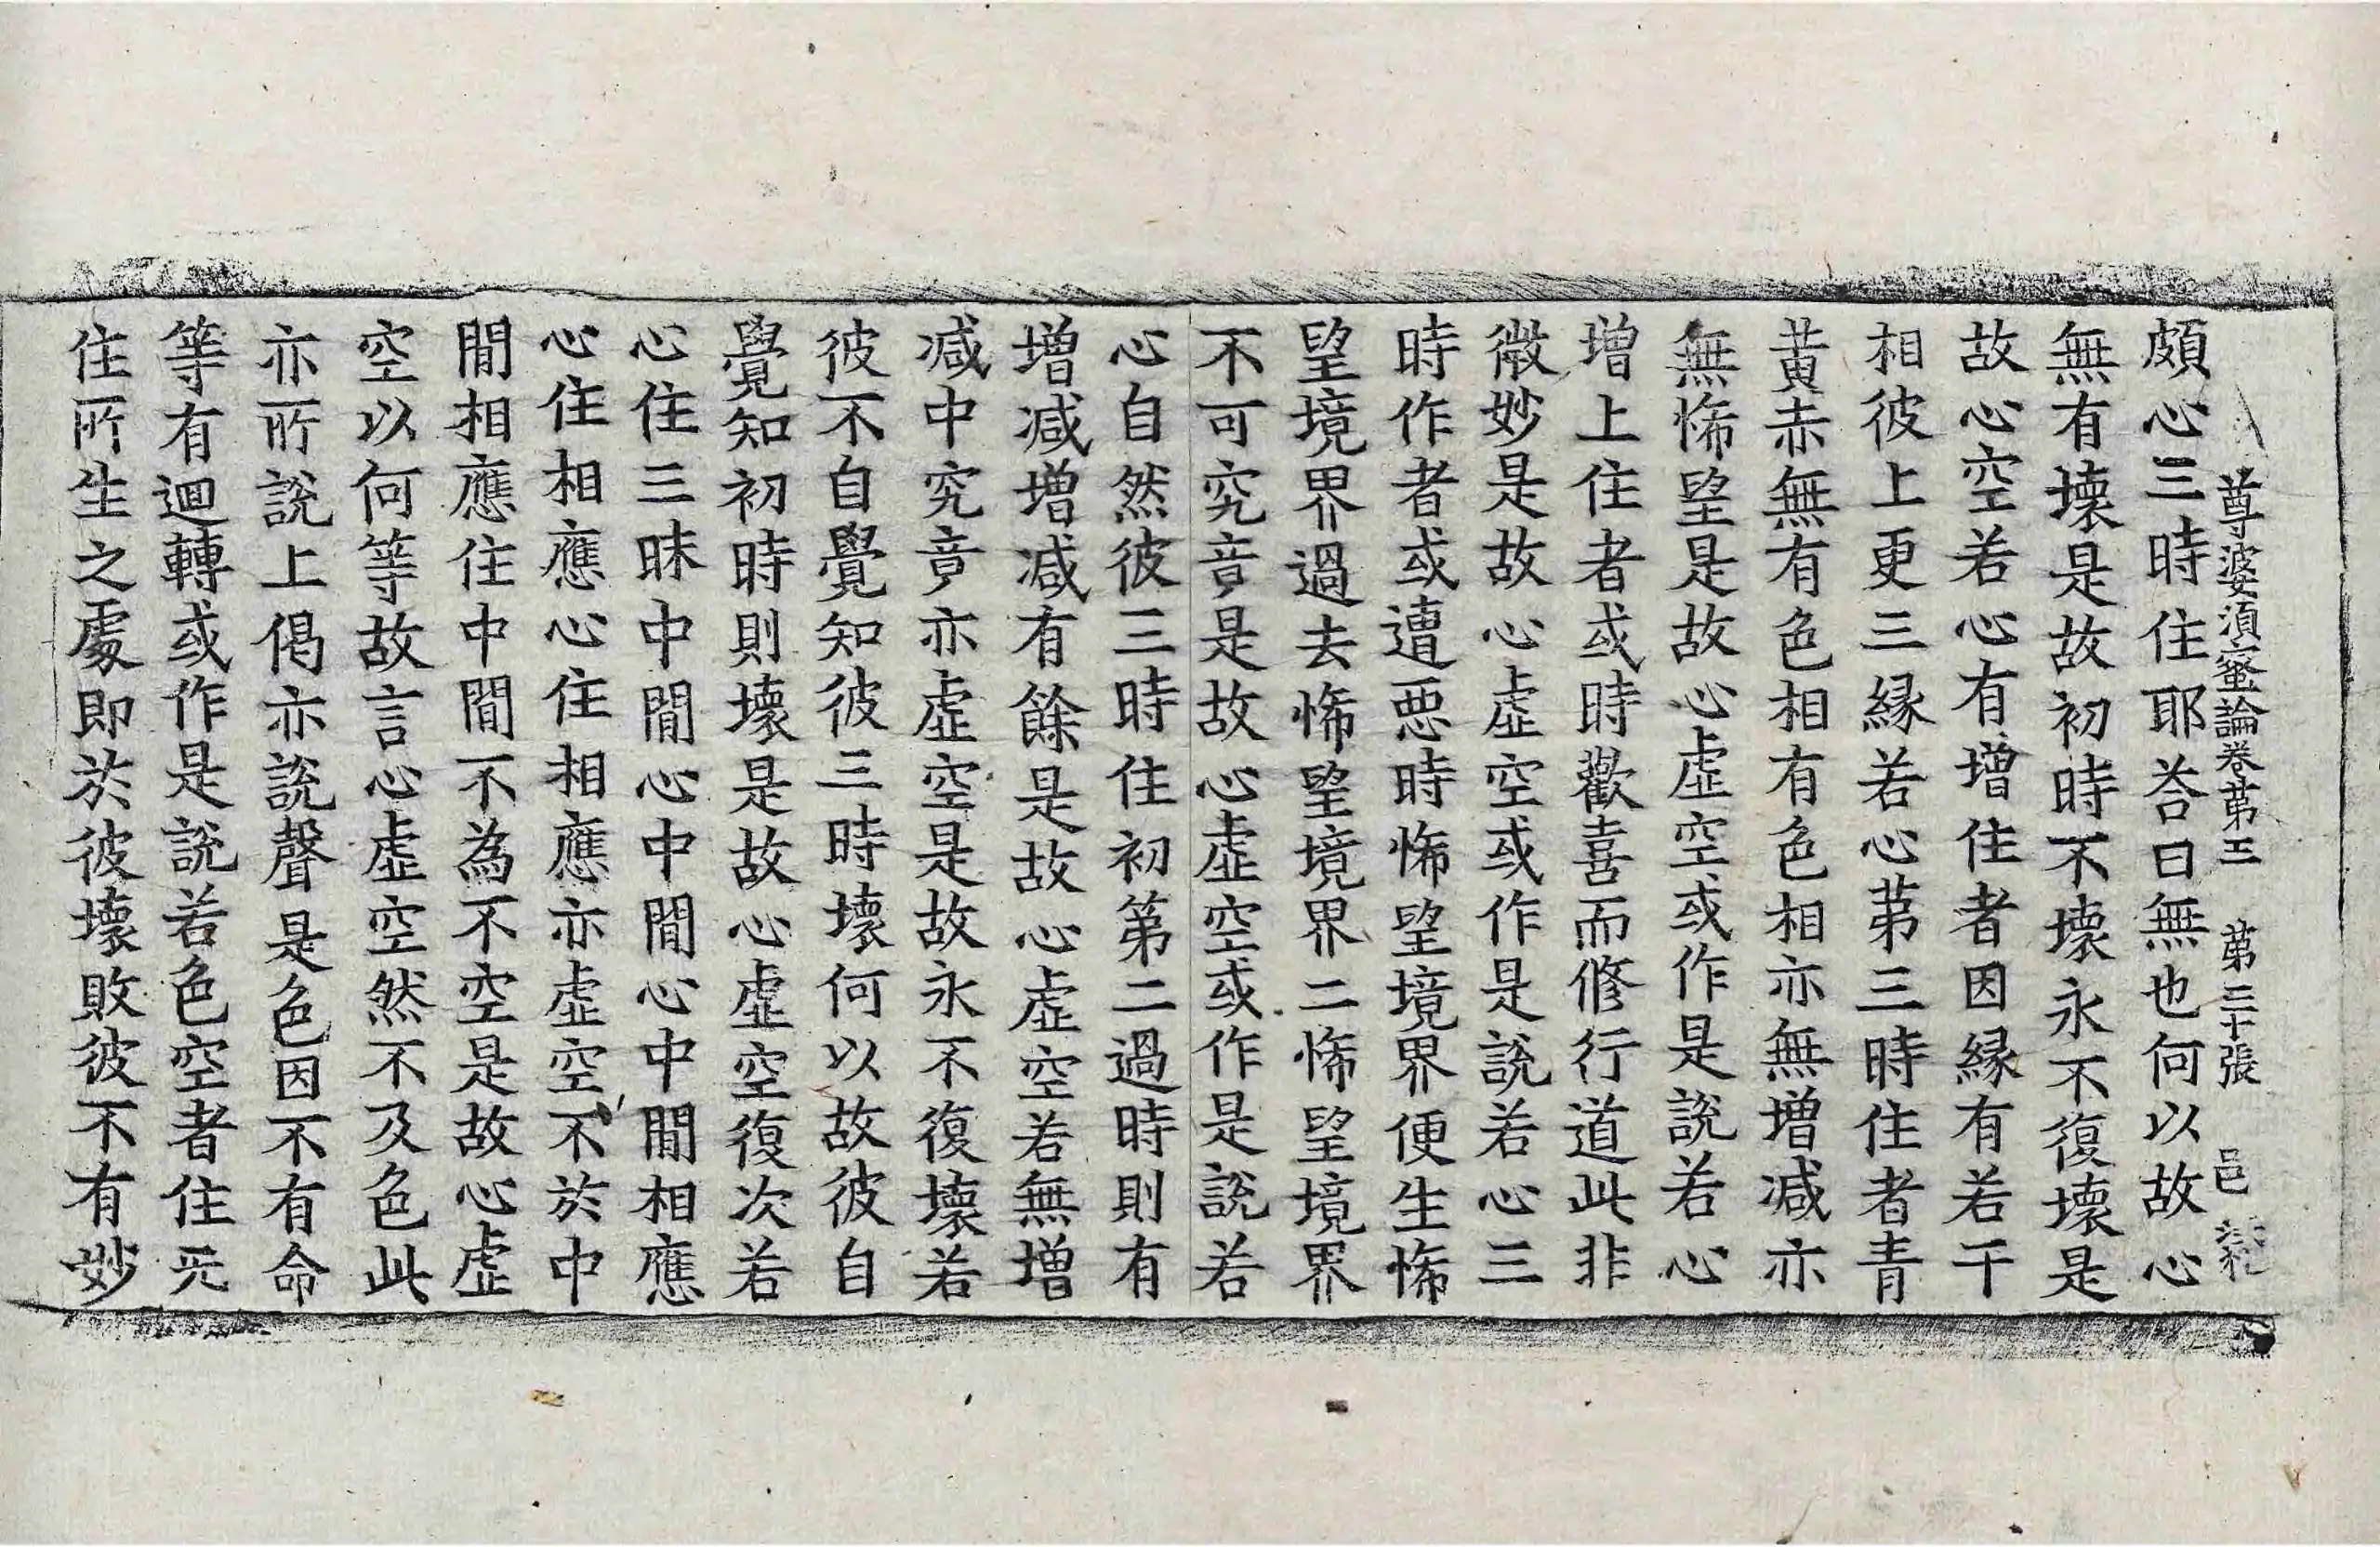 尊婆須蜜論卷第三　第三十張　邑
頗心三時住耶荅曰無也何以故心
無有壞是故初時不壞永不復壞是
故心空若心有增住者因緣有若干
相彼上更三緣若心苐三時住者青
黃赤無有色相有色相亦無增减亦
無悕望是故心虛空或作是說若心
增上住者或時歡喜而修行道此非
微妙是故心虛空或作是說若心三
時作者或遭惡時悕望境界便生悕
望境界過去悕望境界二悕望境界
不可究竟是故心虛空或作是說若
心自然彼三時住初第二過時則有
增减增减有餘是故心虛空若無增
减中究竟亦虛空是故永不復壞若
彼不自覺知彼三時壞何以故彼自
覺知初時則壞是故心虛空復次若
心住三昧中間心中間心中間相應
心住相應心住相應亦虛空不於中
間相應住中間不為不空是故心虛
空以何等故言心虛空然不及色此
亦所說上偈亦說聲是色因不有命
等有迴轉或作是說若色空者住无
住所生之處即於彼壞敗彼不有妙